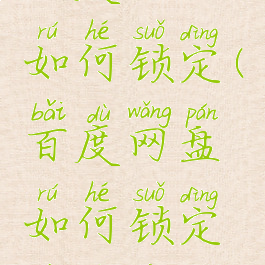 rú hé suǒ dìng
如何锁定(
bǎi dù wǎng pán
百度网盘
rú hé suǒ dìng
如何锁定